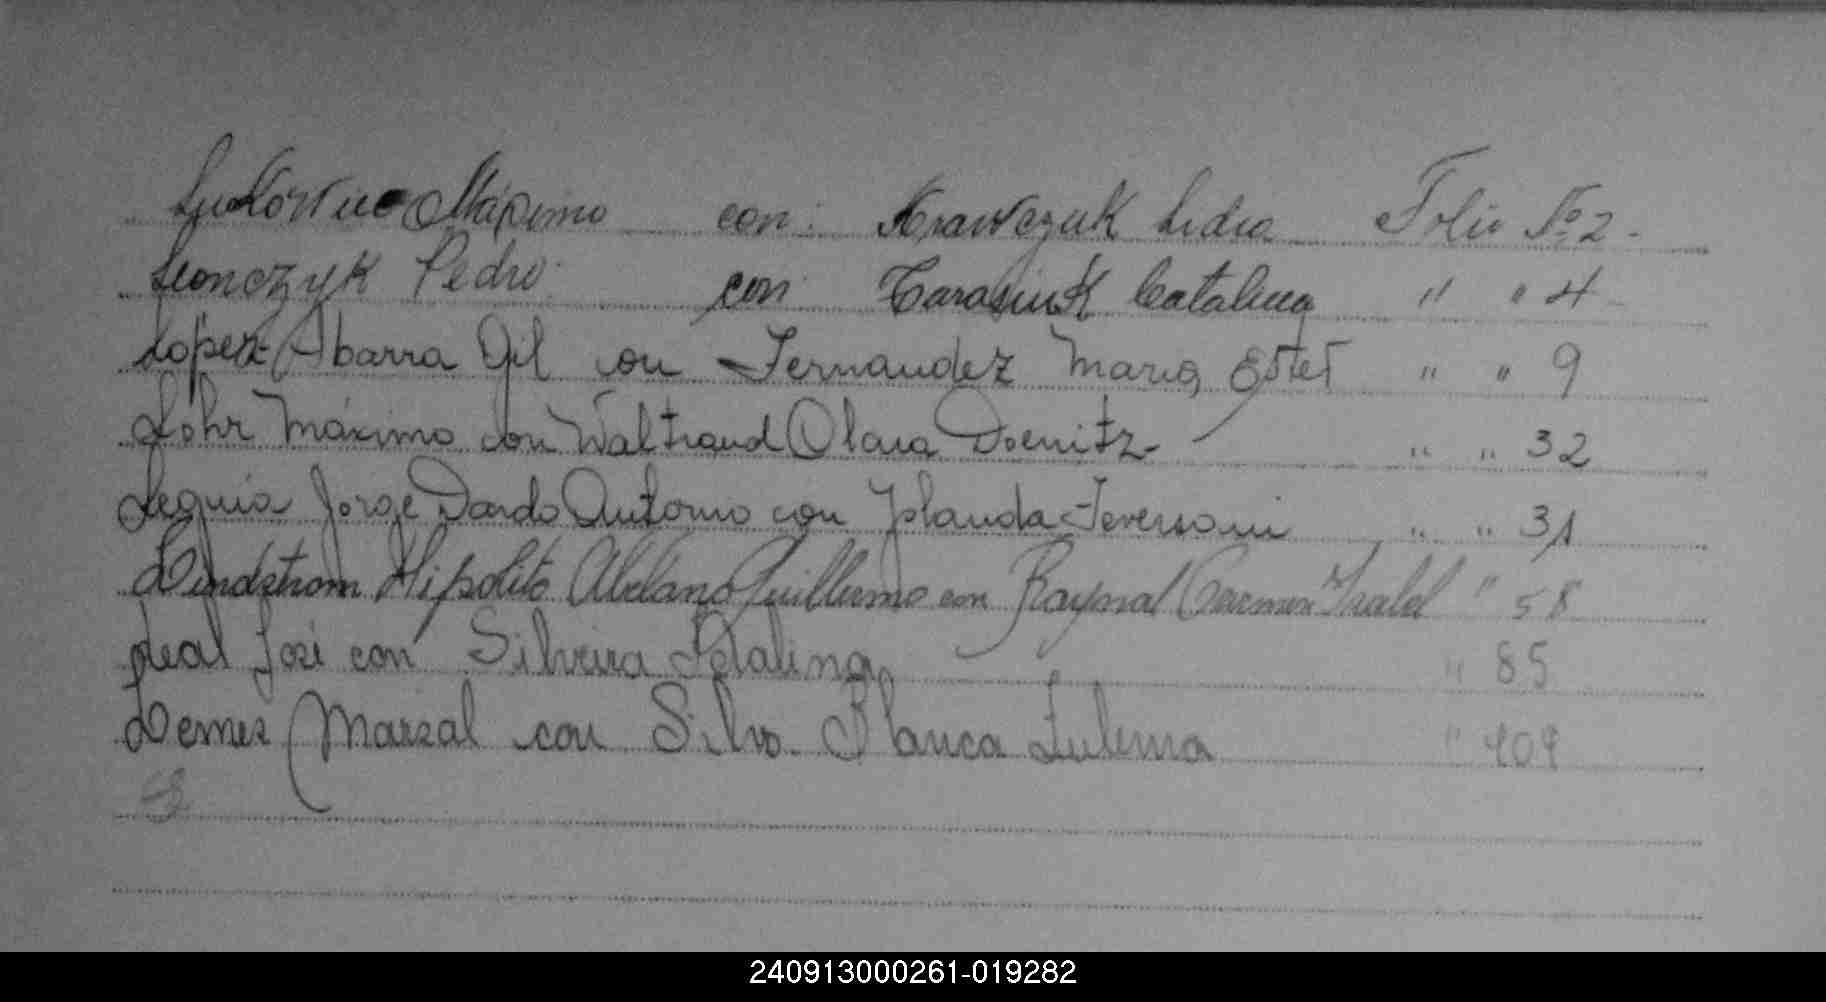 Máximo con: Krawczuk Lidia Folio Nº 2.
Leonczyk Pedro con Tarasiuk Catalina " " 4
Lopez Abarra Gil con Fernandez Maria Ester " " 9
Lohr Máximo con Waltraud Clara Doenitz " " 32
Leguia Jorge Dardo Antonio con Jolanda " " 31
Lindstrom Hipolito Guillermo con Raynal Carmen " 58
Leal José con Silveira Adalina " 85
Lemes Marzal con Silva Blanca Zulema " 109
240913000261-019282